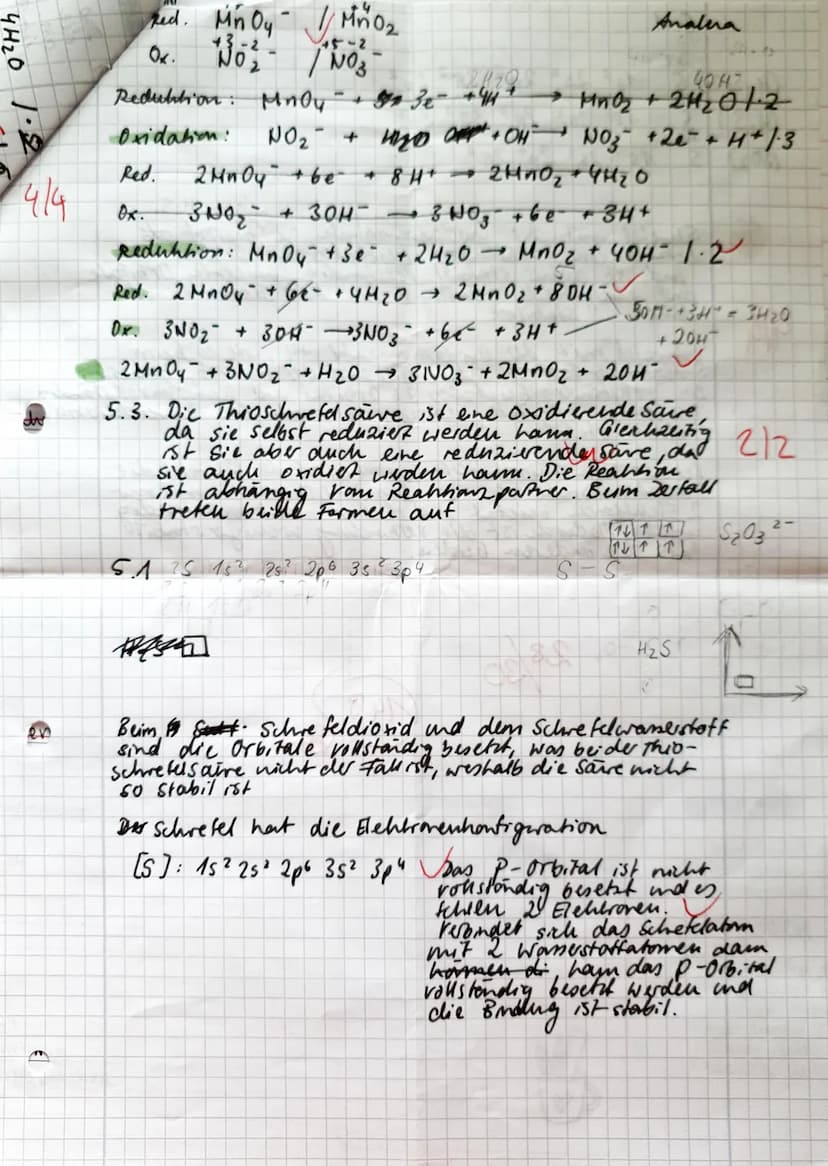 4H2O /·2
Red. MnO4⁻ / MnO2 Analena
+4
+3 -2 +5 -2
Ox. NO2⁻ / NO3⁻
2H2O 4OH⁻
Reduktion: MnO4⁻ + 3e⁻ + 4H⁺ → MnO2 + 2H2O /·2
Oxidation: NO2⁻ + H2O + OH⁻ → NO3⁻ + 2e⁻ + H⁺ /·3
Red. 2MnO4⁻ + 6e⁻ + 8H⁺ → 2MnO2 + 4H2O
4/4
Ox. 3NO2⁻ + 3OH⁻ → 3NO3⁻ + 6e⁻ + 3H⁺
Reduktion: MnO4⁻ + 3e⁻ + 2H2O → MnO2 + 4OH⁻ /·2
Red. 2MnO4⁻ + 6e⁻ + 4H2O → 2MnO2 + 8OH⁻
5
5OH⁻ + 3H⁺ = 3H2O
Ox. 3NO2⁻ + 3OH⁻ → 3NO3⁻ + 6e⁻ + 3H⁺
+ 2OH⁻
2MnO4⁻ + 3NO2⁻ + H2O → 3NO3⁻ + 2MnO2 + 2OH⁻
5.3. Die Thioschwefelsäure ist eine oxidierende Säure,
da sie selbst reduziert werden kann. Gleichzeitig
ist sie aber auch eine reduzierende Säure, da
2/2
sie auch oxidiert werden kann. Die Reaktion
ist abhängig vom Reaktionspartner. Beim Zerfall
treten beide Formen auf
S2O3²⁻
5.1 2S 1s² 2s² 2p⁶ 3s² 3p⁴ S – S
H2S
Beim Schwefeldioxid und dem Schwefelwasserstoff
sind die Orbitale vollständig besetzt, was bei der Thio-
schwefelsäure nicht der Fall ist, weshalb die Säure nicht
so stabil ist
Der Schwefel hat die Elektronenkonfiguration
[S]: 1s² 2s² 2p⁶ 3s² 3p⁴ Das P-Orbital ist nicht
vollständig besetzt und es
fehlen 2 Elektronen.
Verbindet sich das Schefelatom
mit 2 Wasserstoffatomen dann
können di, kann das P-Orbital
vollständig besetzt werden und
die Bindung ist stabil.